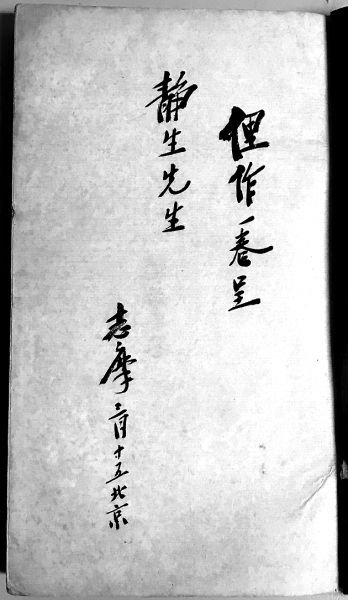 俚作一卷呈
静生先生
志摩 二月十五北京